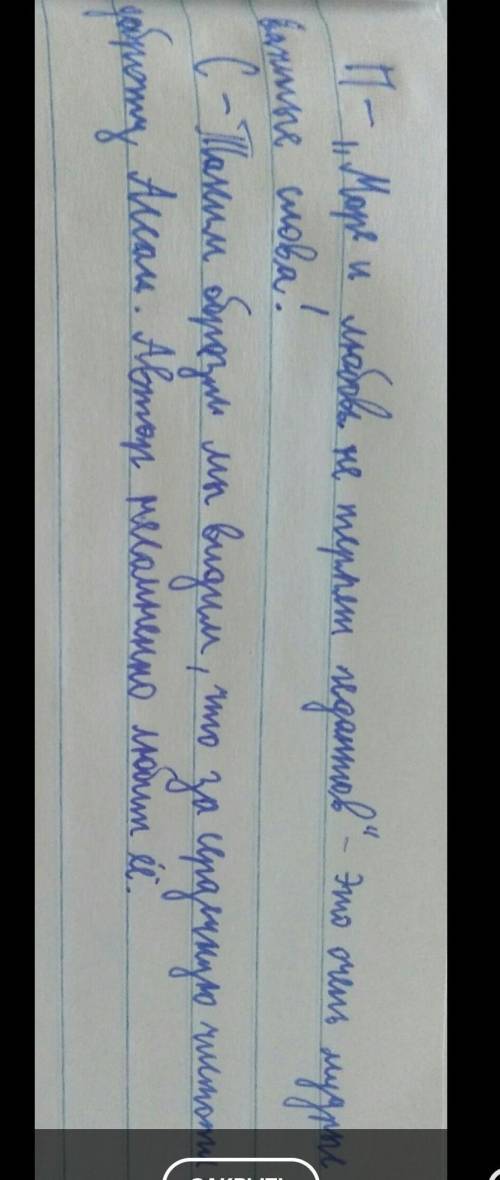 П - „Море и любовь не терпят педантов“ - это очень мудрые
важные слова!
С - Таким образом мы видим, что за сердечную чистоту
доброту Ассоль. Автор несомненно любит её.
ЗАКРЫТЬ